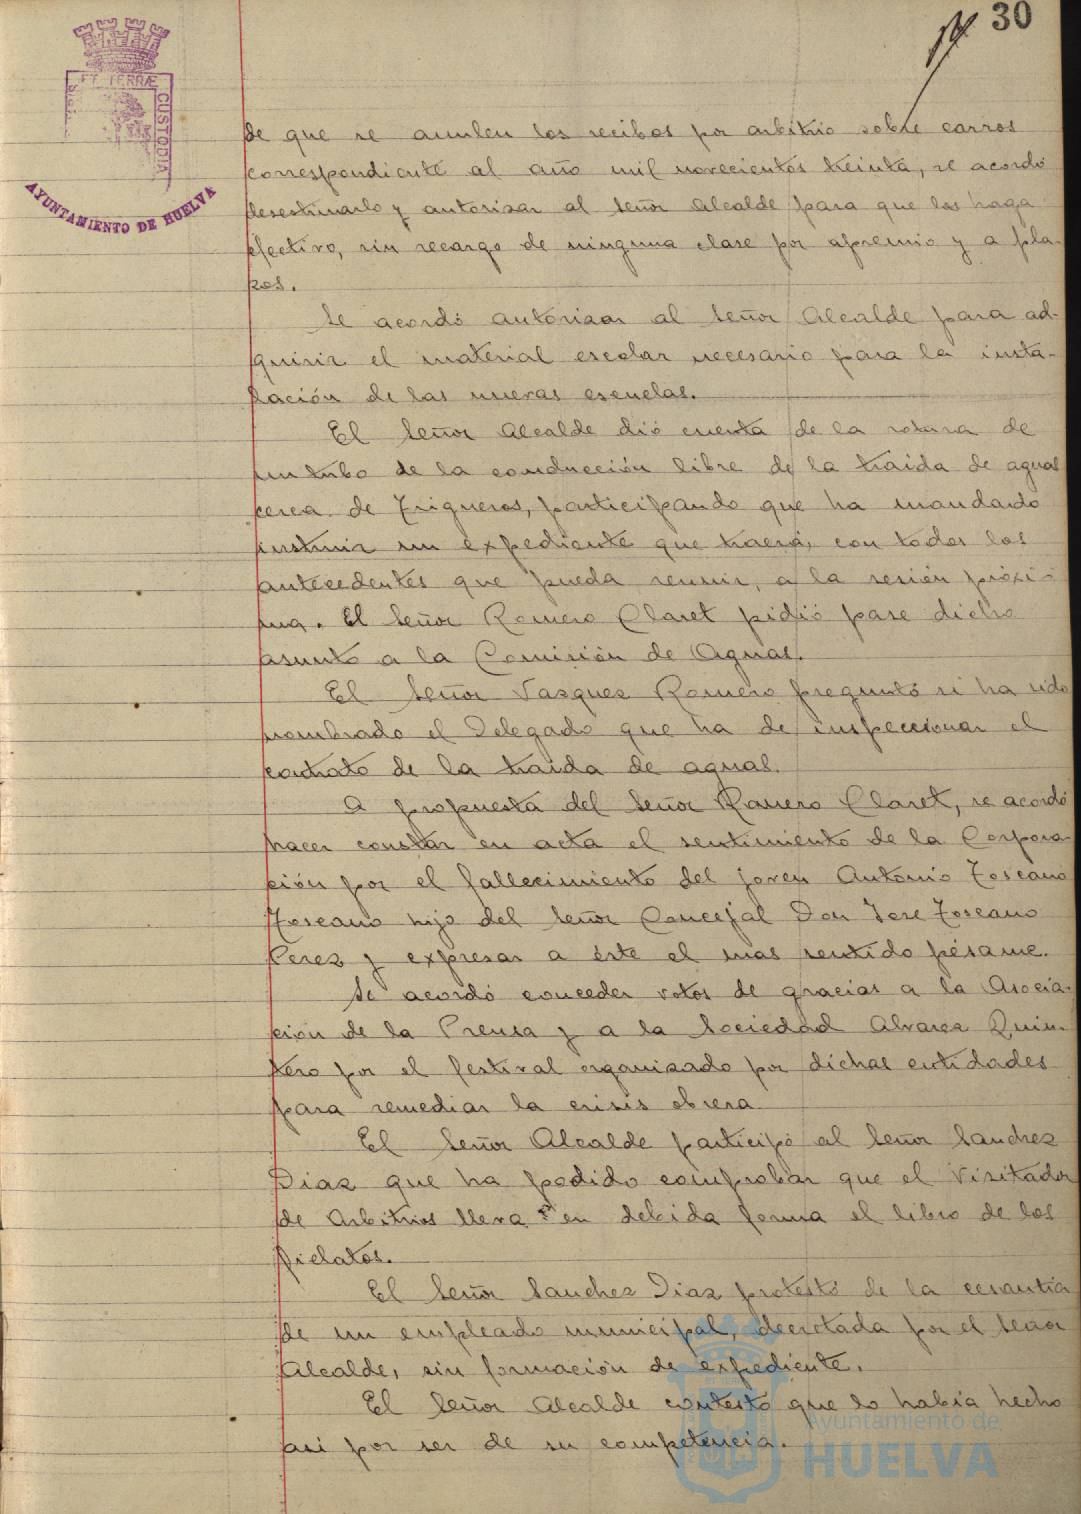 30
ET TERRÆ CUSTODIA
AYUNTAMIENTO DE HUELVA
de que se anulen los recibos por arbitrio sobre carros
correspondiente al año mil novecientos treinta, se acordó
desestimarlo y autorizar al Señor Alcalde para que los haga
efectivo, sin recargo de ninguna clase por apremio y a pla-
zos.
Se acordó autorizar al Señor Alcalde para ad-
quirir el material escolar necesario para la insta-
lación de las nuevas escuelas.
El Señor Alcalde dió cuenta de la rotura de
un tubo de la conducción libre de la traida de aguas
cerca de Trigueros, participando que ha mandado
instruir un expediente que traerá, con todos los
antecedentes que pueda reunir, a la sesión próxi-
ma. El Señor Romero Claret pidió pase dicho
asunto a la Comisión de Aguas.
El Señor Vazquez Romero preguntó si ha sido
nombrado el Delegado que ha de inspeccionar el
contrato de la traida de aguas.
A propuesta del Señor Romero Claret, se acordó
hacer constar en acta el sentimiento de la Corpora-
ción por el fallecimiento del joven Antonio Toscano
Toscano hijo del Señor Concejal Don Jose Toscano
Perez y expresar a éste el mas sentido pésame.
Se acordó conceder votos de gracias a la Asocia-
ción de la Prensa y a la Sociedad Alvarez Quin-
tero por el festival organizado por dichas entidades
para remediar la crisis obrera
El Señor Alcalde participó al Señor Sanchez
Diaz que ha podido comprobar que el Visitador
de Arbitrios lleva en debida forma el libro de los
fielatos.
El Señor Sanchez Diaz protestó de la cesantía
de un empleado municipal, decretada por el Señor
Alcalde, sin formación de expediente.
El Señor Alcalde contestó que lo había hecho
asi por ser de su competencia.
Ayuntamiento de
HUELVA